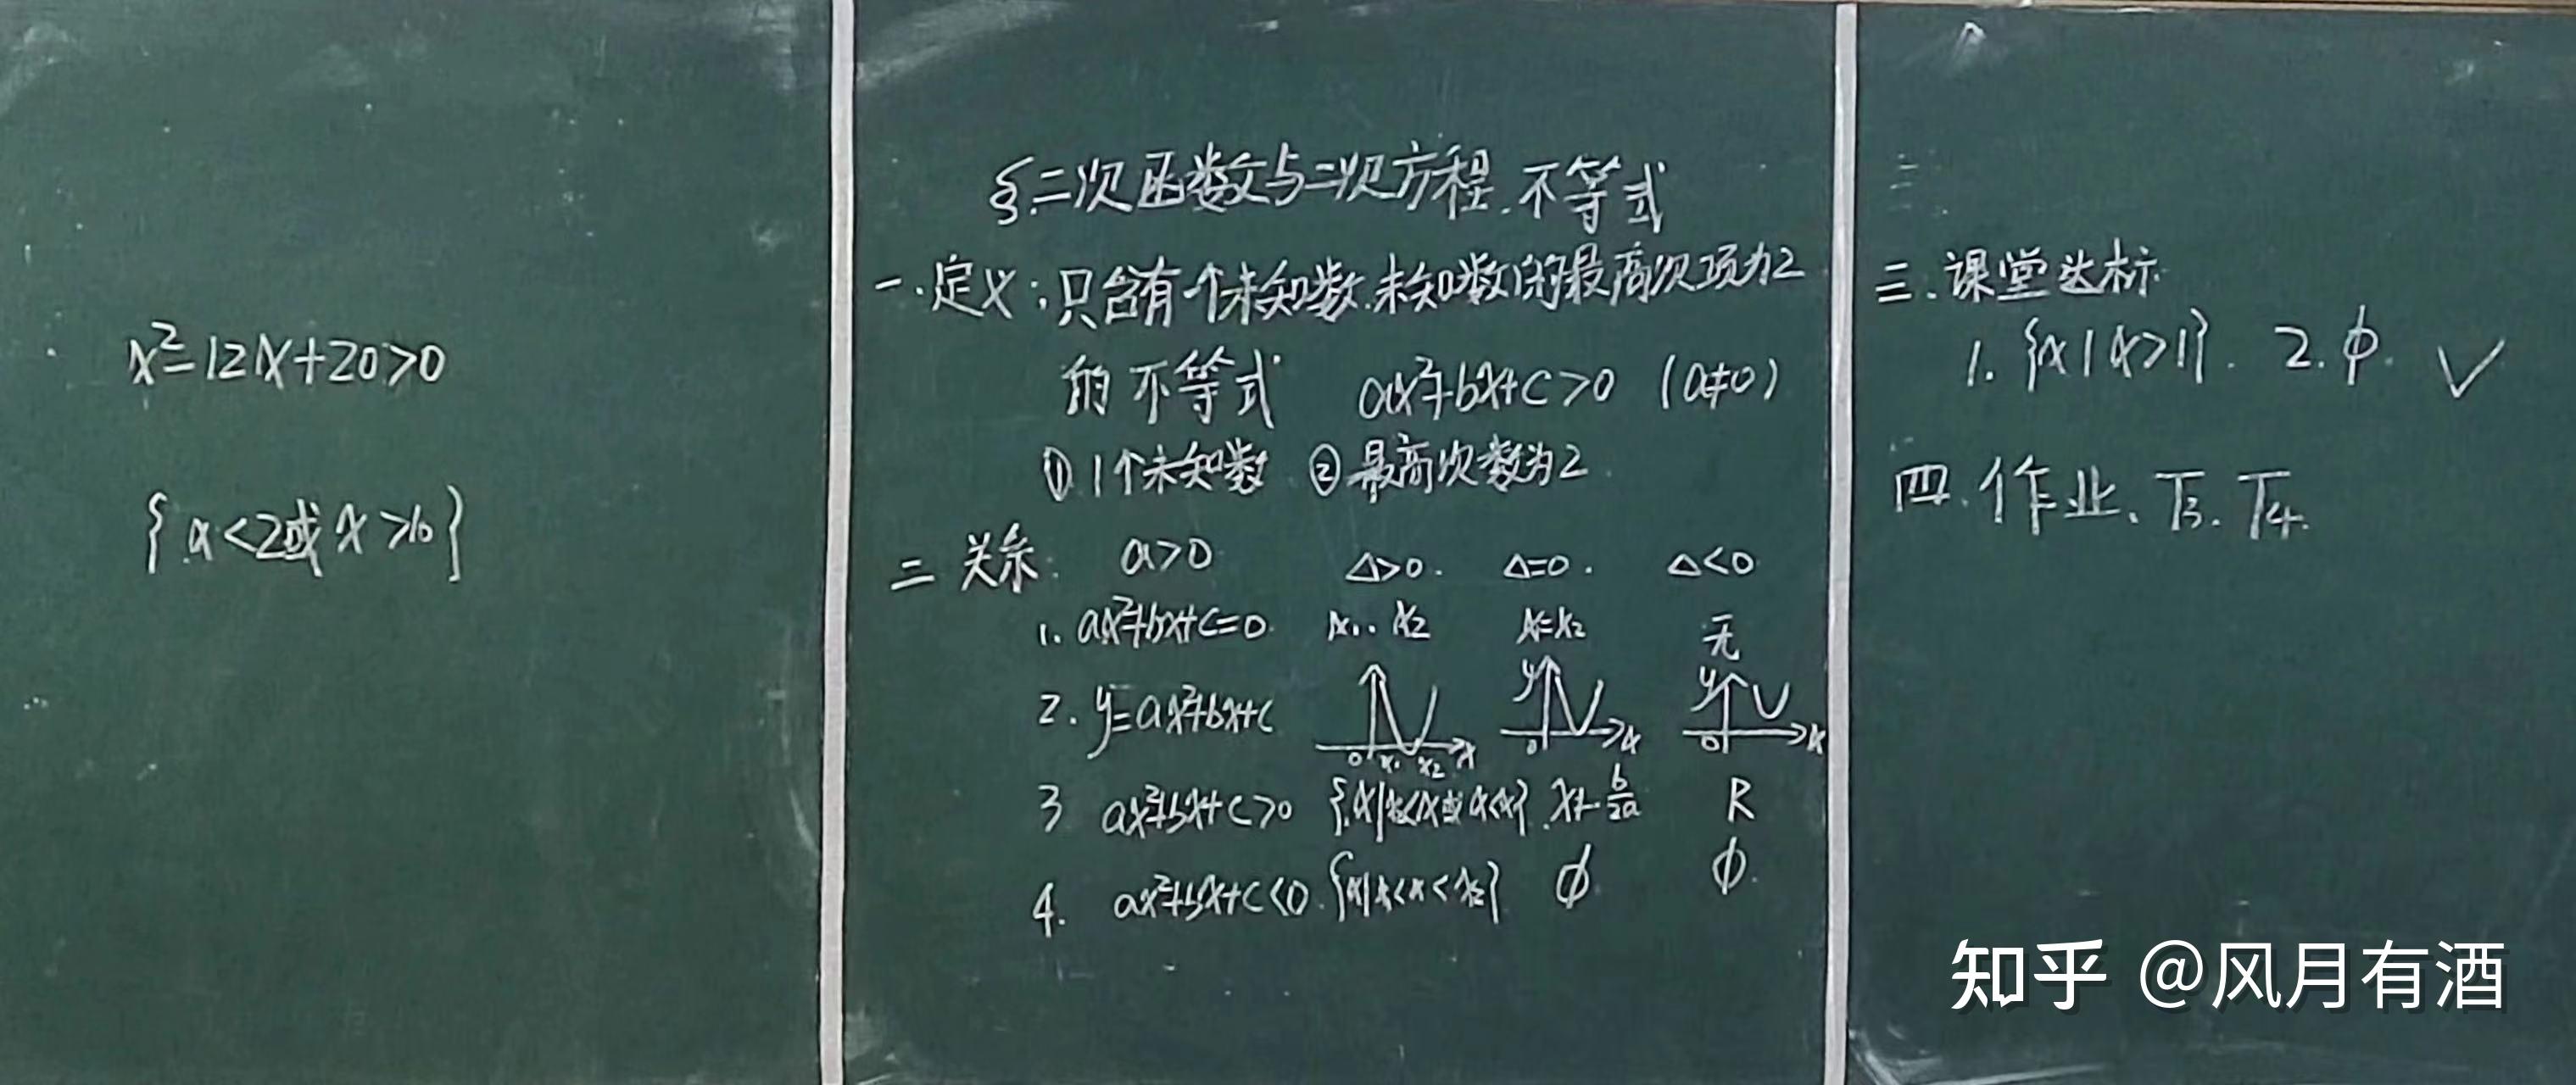 x²-12x+20>0
{x<2或x>10}
§.二次函数与二次方程.不等式
一.定义:只含有一个未知数.未知数的最高次项为2
的不等式 ax²+bx+c>0 (a≠0)
① 1个未知数 ② 最高次数为2
二 关系: a>0 Δ>0. Δ=0. Δ<0
1. ax²+bx+c=0 x₁. x₂ x₁=x₂ 无
2. y=ax²+bx+c
0 x₁ x₂ x y 0 x y 0 x
3 ax²+bx+c>0 {x|x₂<x或x<x₁} x≠-b/2a R
4. ax²+bx+c<0. {x|x₁<x<x₂} ∅ ∅.
三.课堂达标
1. {x|x>1}. 2.∅. √
四.作业、T3.T4.
知乎 @风月有酒